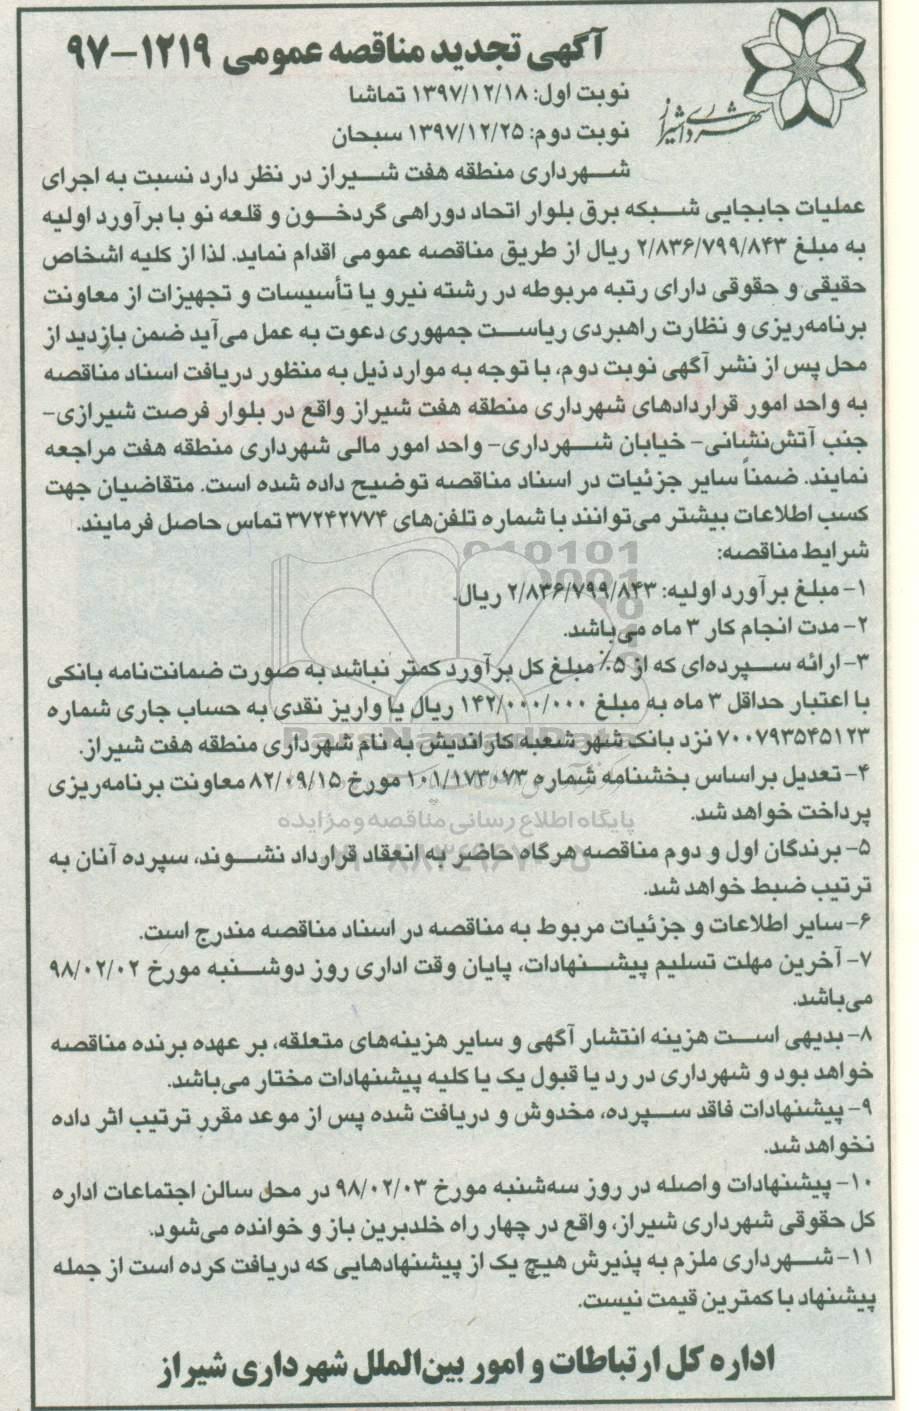 آگهی تجدید مناقصه عمومی ۱۲۱۹-۹۷
نوبت اول: ۱۳۹۷/۱۲/۱۸ تماشا
نوبت دوم: ۱۳۹۷/۱۲/۲۵ سبحان
شهرداری شیراز
شهرداری منطقه هفت شیراز در نظر دارد نسبت به اجرای
عملیات جابجایی شبکه برق بلوار اتحاد دوراهی گردخون و قلعه نو با برآورد اولیه
به مبلغ ۲/۸۳۶/۷۹۹/۸۴۳ ریال از طریق مناقصه عمومی اقدام نماید. لذا از کلیه اشخاص
حقیقی و حقوقی دارای رتبه مربوطه در رشته نیرو یا تأسیسات و تجهیزات از معاونت
برنامه‌ریزی و نظارت راهبردی ریاست جمهوری دعوت به عمل می‌آید ضمن بازدید از
محل پس از نشر آگهی نوبت دوم، با توجه به موارد ذیل به منظور دریافت اسناد مناقصه
به واحد امور قراردادهای شهرداری منطقه هفت شیراز واقع در بلوار فرصت شیرازی-
جنب آتش‌نشانی- خیابان شهرداری- واحد امور مالی شهرداری منطقه هفت مراجعه
نمایند. ضمناً سایر جزئیات در اسناد مناقصه توضیح داده شده است. متقاضیان جهت
کسب اطلاعات بیشتر می‌توانند با شماره تلفن‌های ۳۷۲۴۲۷۷۴ تماس حاصل فرمایند.
شرایط مناقصه:
۱- مبلغ برآورد اولیه: ۲/۸۳۶/۷۹۹/۸۴۳ ریال.
۲- مدت انجام کار ۳ ماه می‌باشد.
۳- ارائه سپرده‌ای که از ۵٪ مبلغ کل برآورد کمتر نباشد به صورت ضمانت‌نامه بانکی
با اعتبار حداقل ۳ ماه به مبلغ ۱۴۲/۰۰۰/۰۰۰ ریال یا واریز نقدی به حساب جاری شماره
۷۰۰۷۹۳۵۴۵۱۲۳ نزد بانک شهر شعبه کاراندیش به نام شهرداری منطقه هفت شیراز.
۴- تعدیل براساس بخشنامه شماره ۱۰۱/۱۷۳۰۷۳ مورخ ۸۲/۰۹/۱۵ معاونت برنامه‌ریزی
پرداخت خواهد شد.
پایگاه اطلاع رسانی مناقصه و مزایده
۵- برندگان اول و دوم مناقصه هرگاه حاضر به انعقاد قرارداد نشوند، سپرده آنان به
ترتیب ضبط خواهد شد.
۶- سایر اطلاعات و جزئیات مربوط به مناقصه در اسناد مناقصه مندرج است.
۷- آخرین مهلت تسلیم پیشنهادات، پایان وقت اداری روز دوشنبه مورخ ۹۸/۰۲/۰۲
می‌باشد.
۸- بدیهی است هزینه انتشار آگهی و سایر هزینه‌های متعلقه، بر عهده برنده مناقصه
خواهد بود و شهرداری در رد یا قبول یک یا کلیه پیشنهادات مختار می‌باشد.
۹- پیشنهادات فاقد سپرده، مخدوش و دریافت شده پس از موعد مقرر ترتیب اثر داده
نخواهد شد.
۱۰- پیشنهادات واصله در روز سه‌شنبه مورخ ۹۸/۰۲/۰۳ در محل سالن اجتماعات اداره
کل حقوقی شهرداری شیراز، واقع در چهار راه خلدبرین باز و خوانده می‌شود.
۱۱- شهرداری ملزم به پذیرش هیچ یک از پیشنهادهایی که دریافت کرده است از جمله
پیشنهاد با کمترین قیمت نیست.
اداره کل ارتباطات و امور بین‌الملل شهرداری شیراز